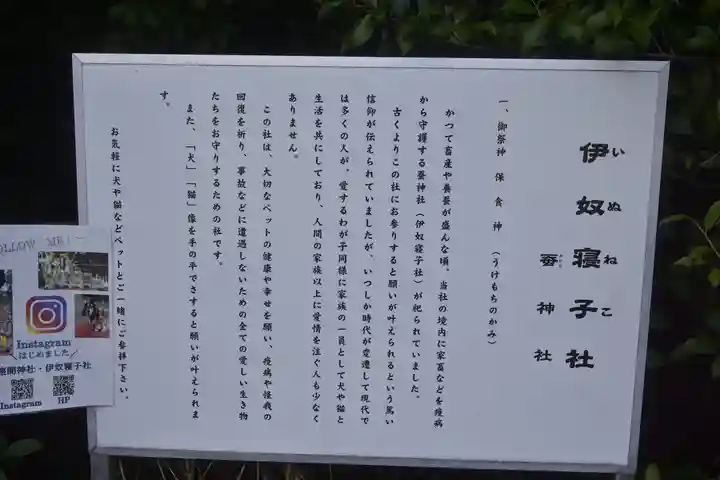 伊奴寝子社
いぬねこ
蚕神社
一、御祭神 保食神 (うけもちのかみ)
かつて畜産や養蚕が盛んな頃、当社の境内に家畜などを疫病
から守護する蚕神社(伊奴寝子社)が祀られていました。
古くよりこの社にお参りすると願いが叶えられるという篤い
信仰が伝えられていましたが、いつしか時代が変遷して現代で
は多くの人が、愛するわが子同様に家族の一員として犬や猫と
生活を共にしており、人間の家族以上に愛情を注ぐ人も少なく
ありません。
この社は、大切なペットの健康や幸せを願い、疫病や怪我の
回復を祈り、事故などに遭遇しないための全ての愛しい生き物
たちをお守りするための社です。
また、「犬」「猫」像を手の平でさすると願いが叶えられま
す。
お気軽に犬や猫などペットとご一緒にご参拝下さい。
Instagram
はじめました
間神社・伊奴寝子社
Instagram
HP